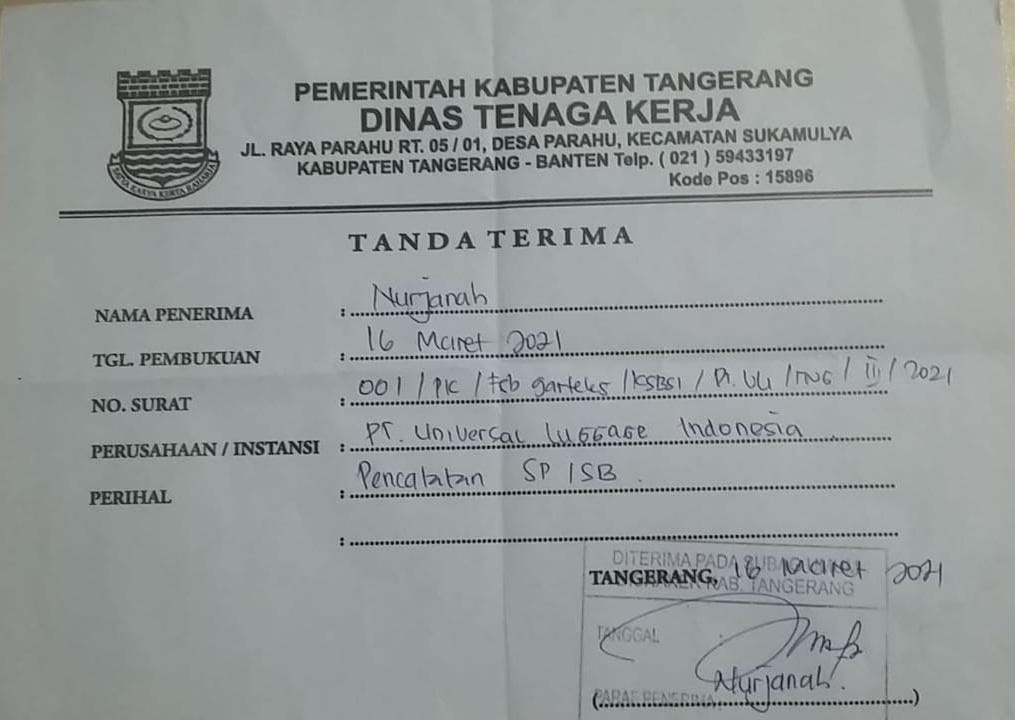 PEMERINTAH KABUPATEN TANGERANG
DINAS TENAGA KERJA
JL. RAYA PARAHU RT. 05 / 01, DESA PARAHU, KECAMATAN SUKAMULYA
KABUPATEN TANGERANG - BANTEN Telp. ( 021 ) 59433197
Kode Pos : 15896
TANDA TERIMA
NAMA PENERIMA : Nurjanah
TGL. PEMBUKUAN : 16 Maret 2021
NO. SURAT : 001 / PK / Fsb garteks / KSBSI / Pt. ULI / TNG / III / 2021
PERUSAHAAN / INSTANSI : PT. Universal Luggage Indonesia
PERIHAL : Pencatatan SP / SB
:
DITERIMA PADA SUB
TANGERANG, 16 Maret 2021
KAB. TANGERANG
TANGGAL
Nurjanah.
PARAF PENERIMA
(..........)